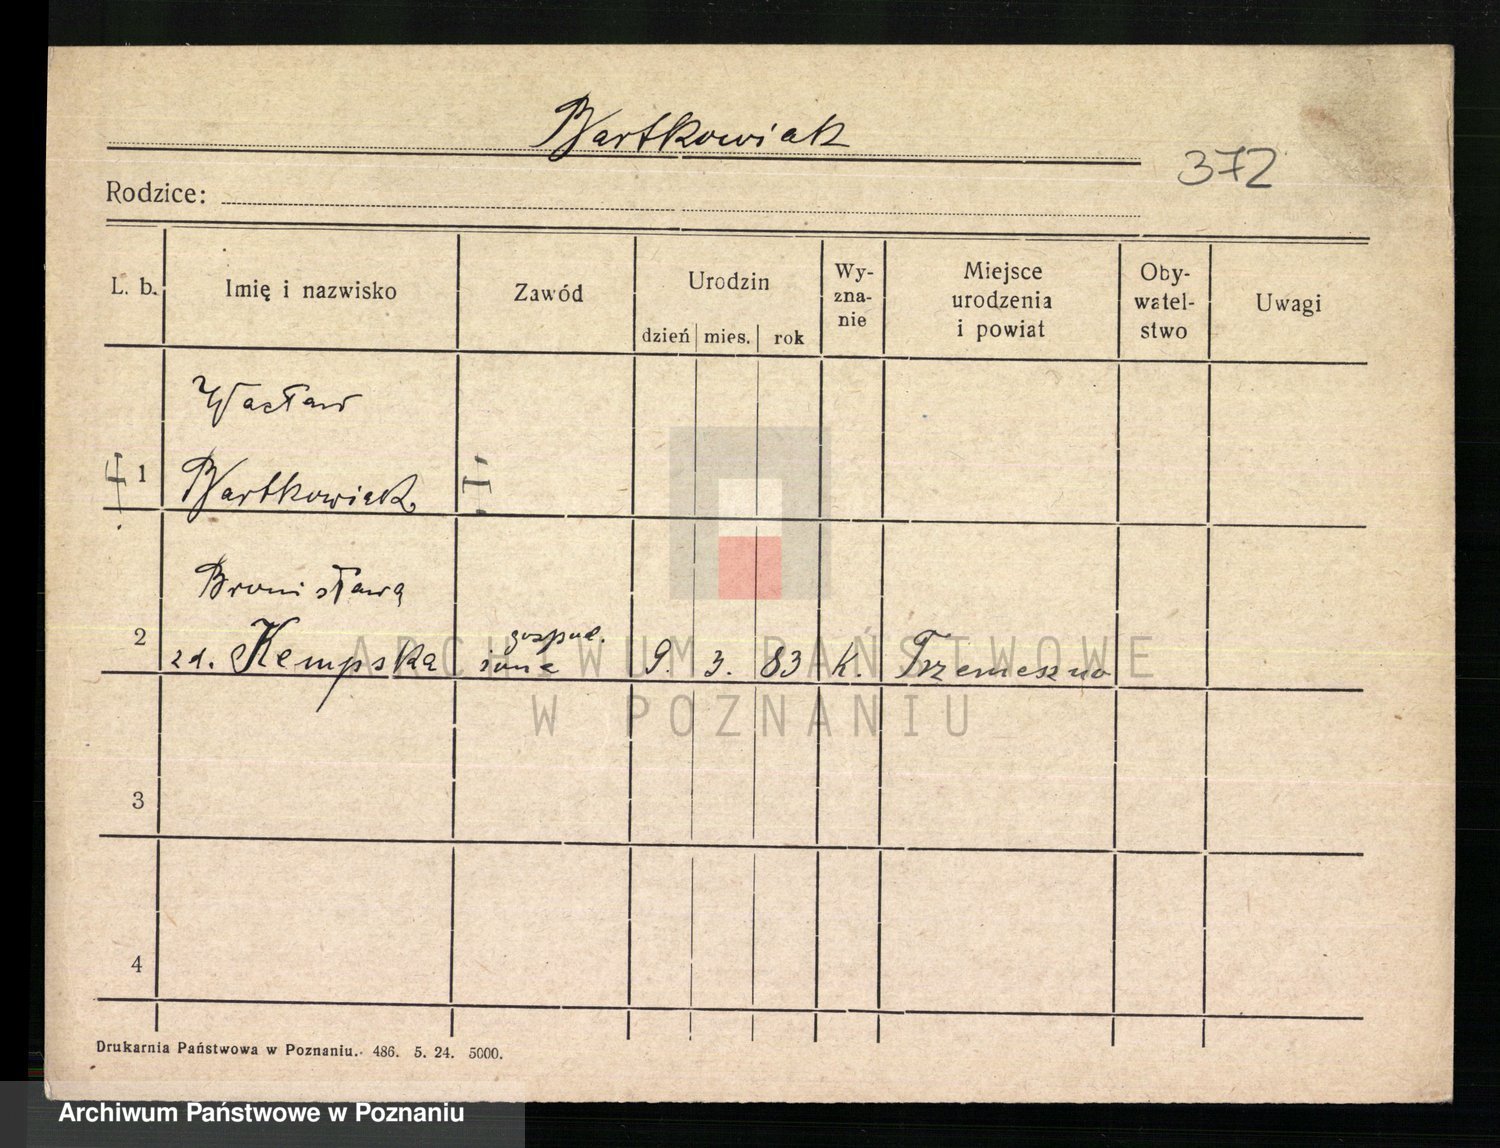 Bartkowiak
372
Rodzice:
L. b.
Imię i nazwisko
Zawód
Urodzin
dzień mies. rok
Wy-
zna-
nie
Miejsce
urodzenia
i powiat
Oby-
watel-
stwo
Uwagi
Wacław
1
Bartkowiak
Bronisława
2
zd. Kempska
gospod.
9. 3. 83 K. Trzemeszno
3
4
ARCHIWUM PAŃSTWOWE
W POZNANIU
Drukarnia Państwowa w Poznaniu. 486. 5. 24. 5000.
Archiwum Państwowe w Poznaniu